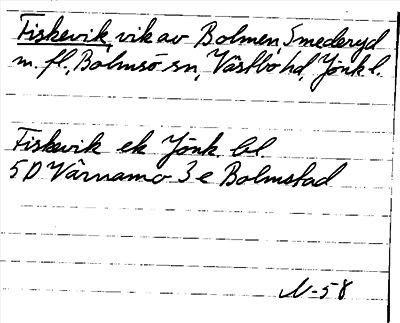 Fiskevik, vik av Bolmen, Smederyd
m. fl., Bolmsö sn, Västbo hd, Jönk l.
Fiskevik ek Jönk. bl.
5D Värnamo 3e Bolmstad
N-58